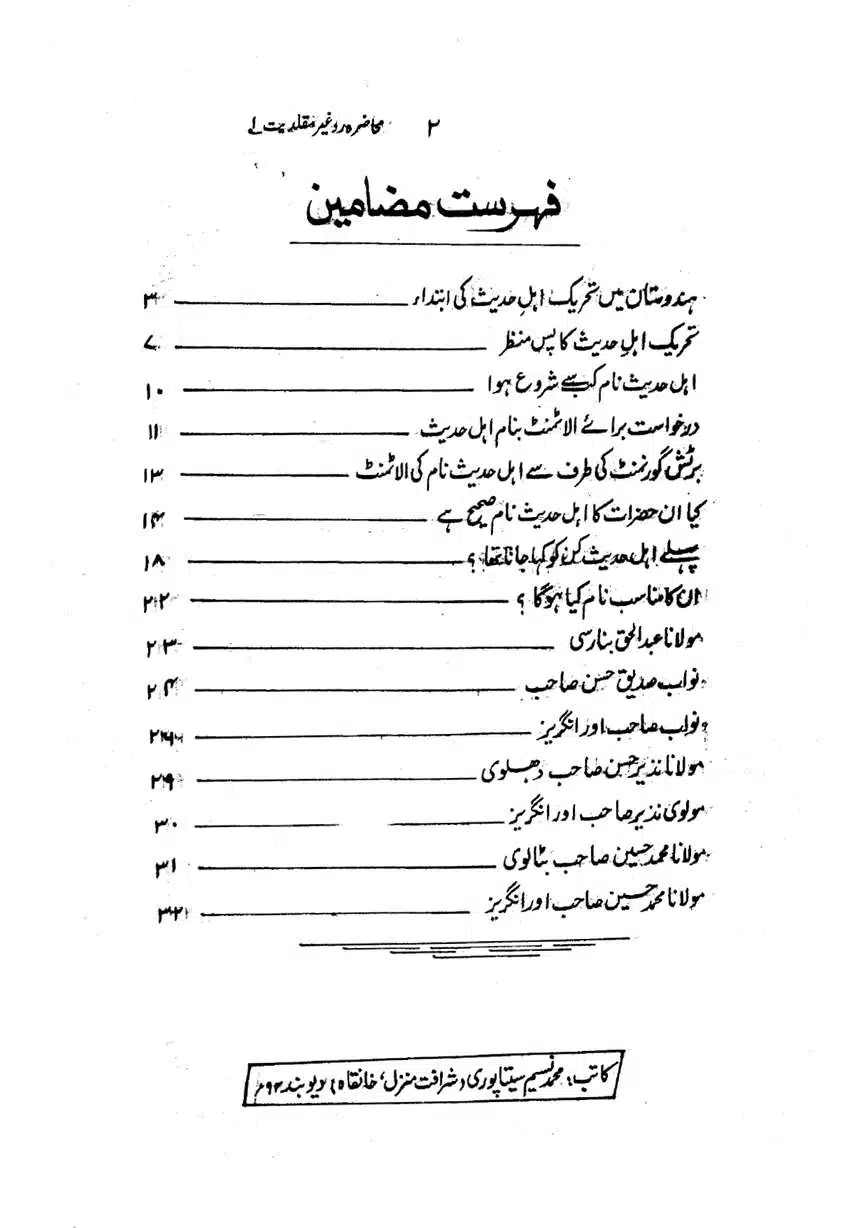 ۲ محاضرہ رد غیر مقلدیت ۱
فہرست مضامین
ہندوستان میں تحریک اہلِ حدیث کی ابتداء ۳
تحریک اہلِ حدیث کا پس منظر ۷
اہل حدیث نام کب سے شروع ہوا ۱۰
درخواست برائے الاٹمنٹ بنام اہل حدیث ۱۱
برٹش گورنمنٹ کی طرف سے اہل حدیث نام کی الاٹمنٹ ۱۳
کیا ان حضرات کا اہل حدیث نام صحیح ہے ۱۴
پہلے اہل حدیث کن کو کہا جاتا تھا ؟ ۱۸
ان کا مناسب نام کیا ہوگا ؟ ۲۲
مولانا عبدالحق بنارسی ۲۳
نواب صدیق حسن صاحب ۲۴
نواب صاحب اور انگریز ۲۶
مولانا نذیر حسن صاحب دھلوی ۲۹
مولوی نذیر صاحب اور انگریز ۳۰
مولانا محمد حسین صاحب بٹالوی ۳۱
مولانا محمد حسین صاحب اور انگریز ۳۲
کاتب: محمد نسیم سیتاپوری (شرافت منزل، خانقاہ) دیوبند